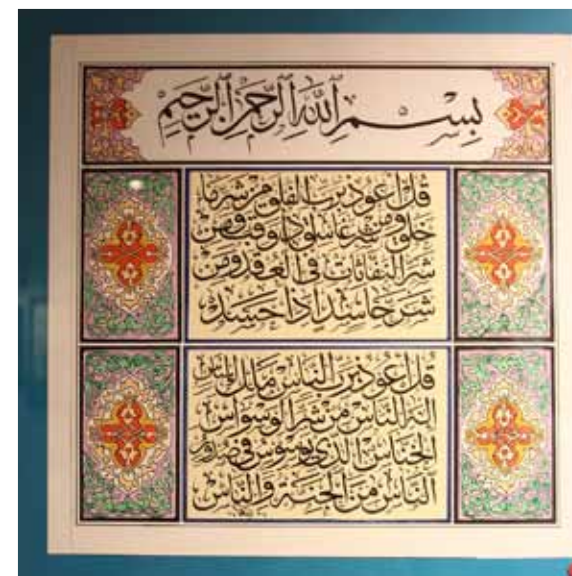 بِسْمِ اللَّهِ الرَّحْمَنِ الرَّحِيمِ
قل أعوذ برب الفلق من شر ما
خلق ومن شر غاسق إذا وقب ومن
شر النفاثات في العقد ومن
شر حاسد إذا حسد
قل أعوذ برب الناس ملك الناس
إله الناس من شر الوسواس
الخناس الذي يوسوس في صدور
الناس من الجنة والناس